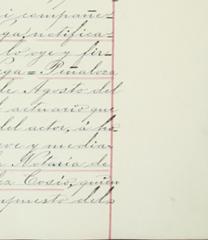 i compañe-
ga, notifica-
lo oyó y fir-
ega = Peñaloza
de Agosto del
actuario que
del actor, á ho-
eve y media
a Notaría de
ez Cosío, quien
mpuesto del